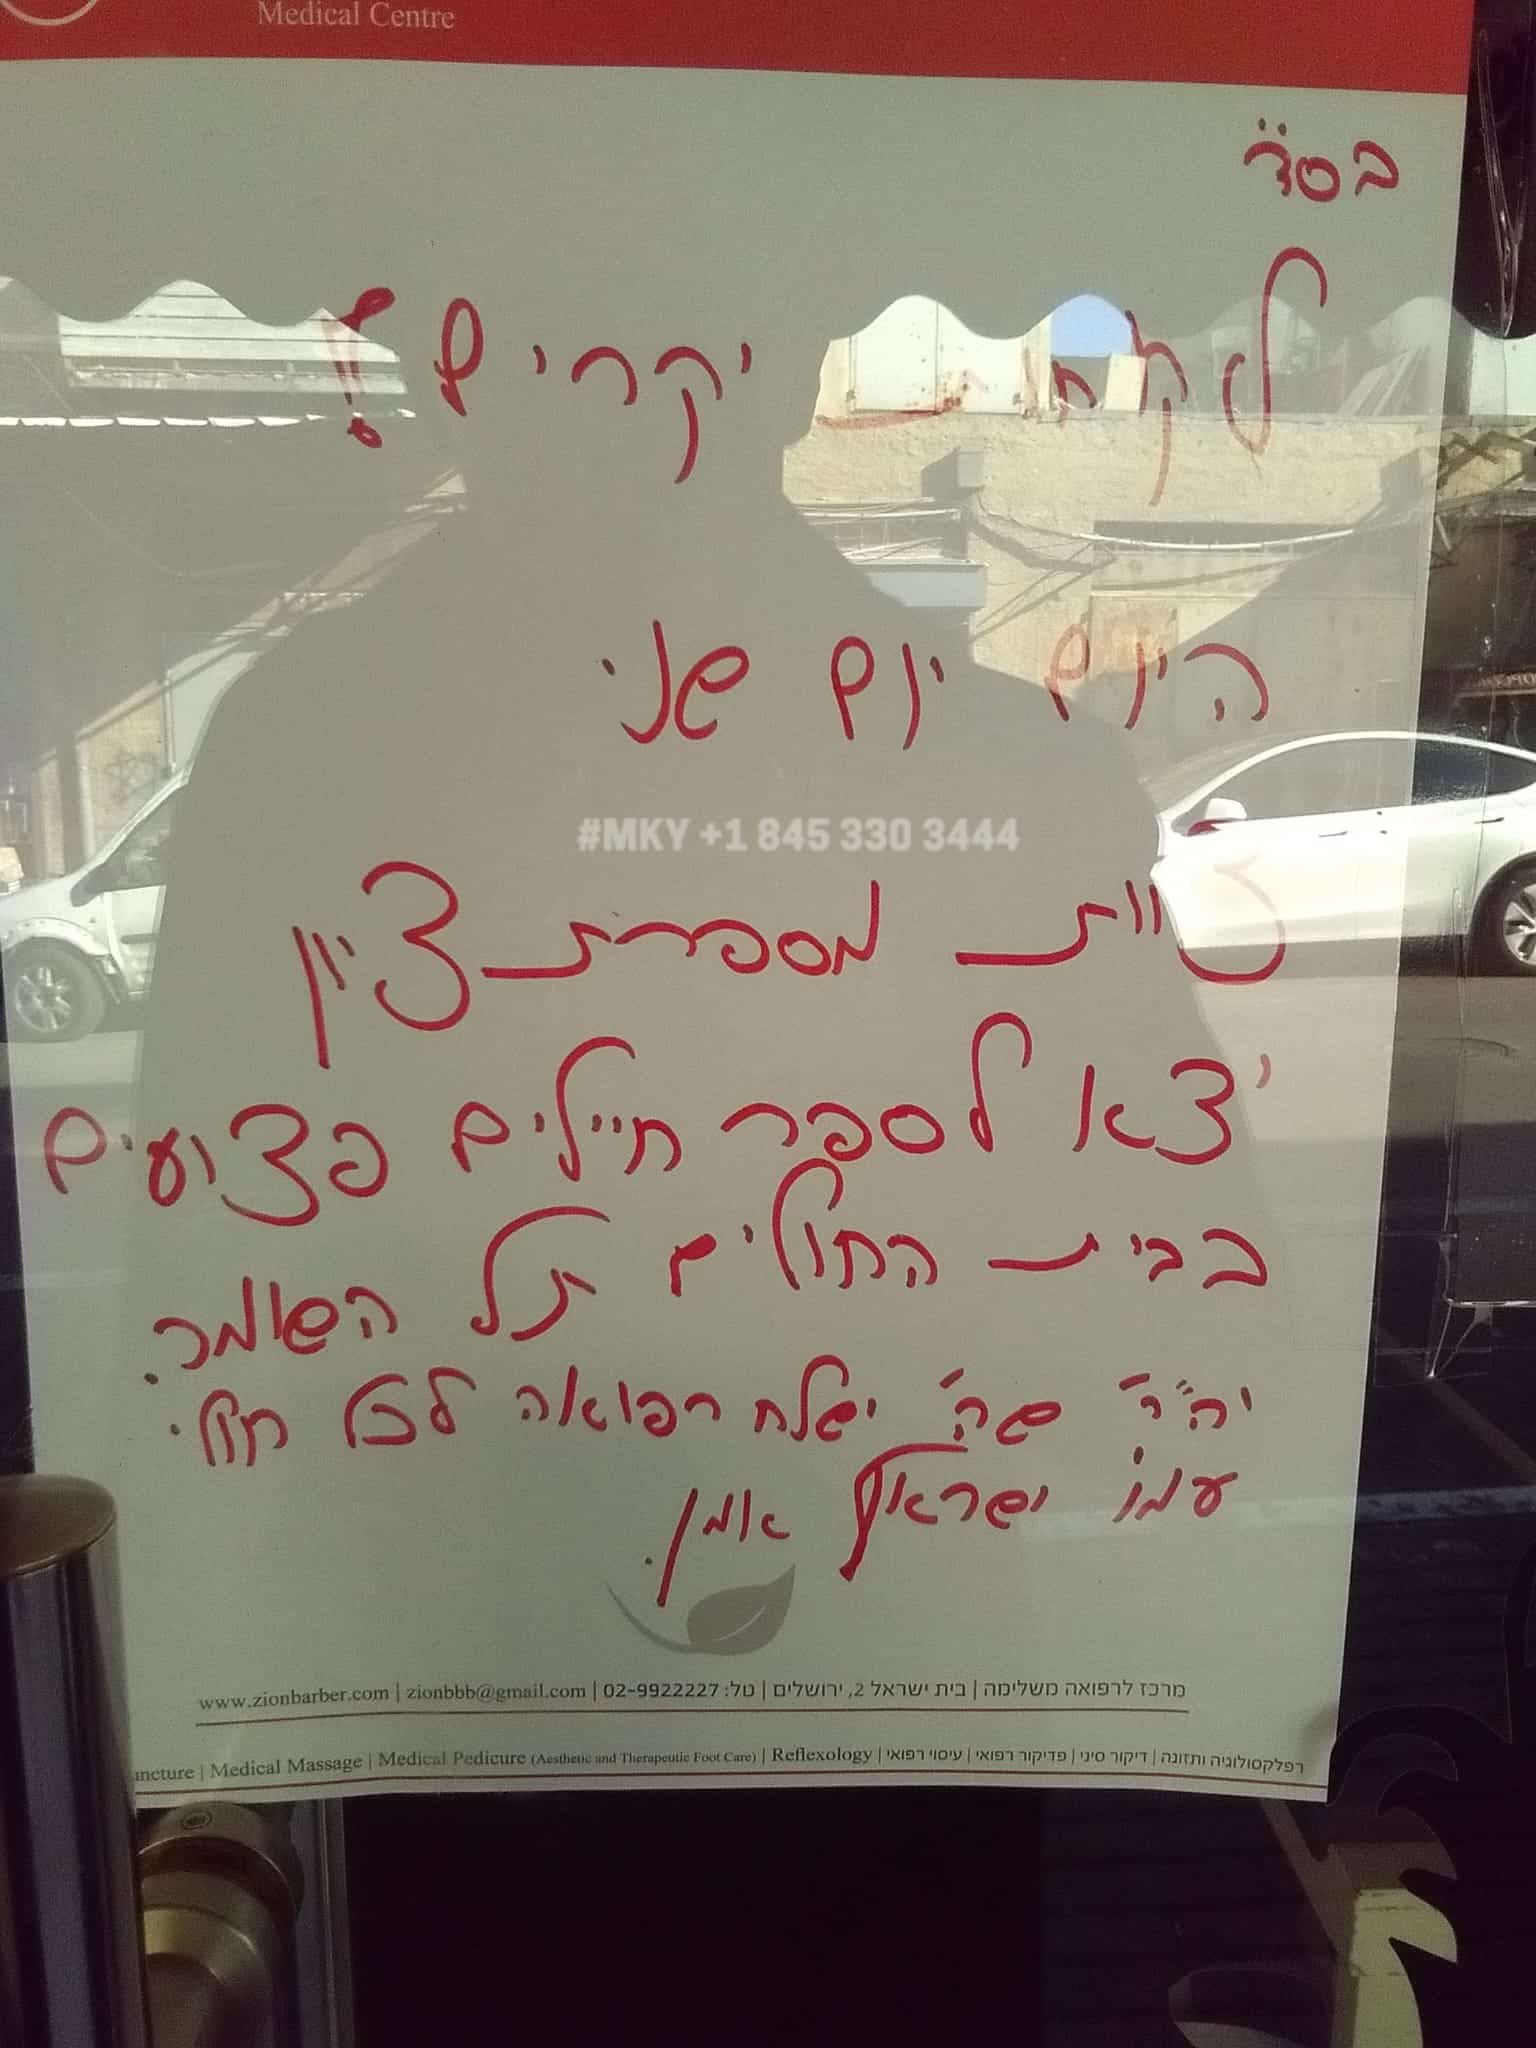 Medical Centre
בס״ד
לקוחות יקרים!
היום יום שני
#MKY +1 845 330 3444
צוות מספרת ציון
יצא לספר חיילים פצועים
בבית החולים תל השומר.
יה״ר שה׳ ישלח רפואה לכל חולי
עמו ישראל אמן.
מרכז לרפואה משלימה | בית ישראל 2, ירושלים | טל: 02-9922227 | zionbbb@gmail.com | www.zionbarber.com
רפלקסולוגיה ותזונה | דיקור סיני | פדיקור רפואי | עיסוי רפואי | Medical Massage | Medical Pedicure (Aesthetic and Therapeutic Foot Care) | Reflexology